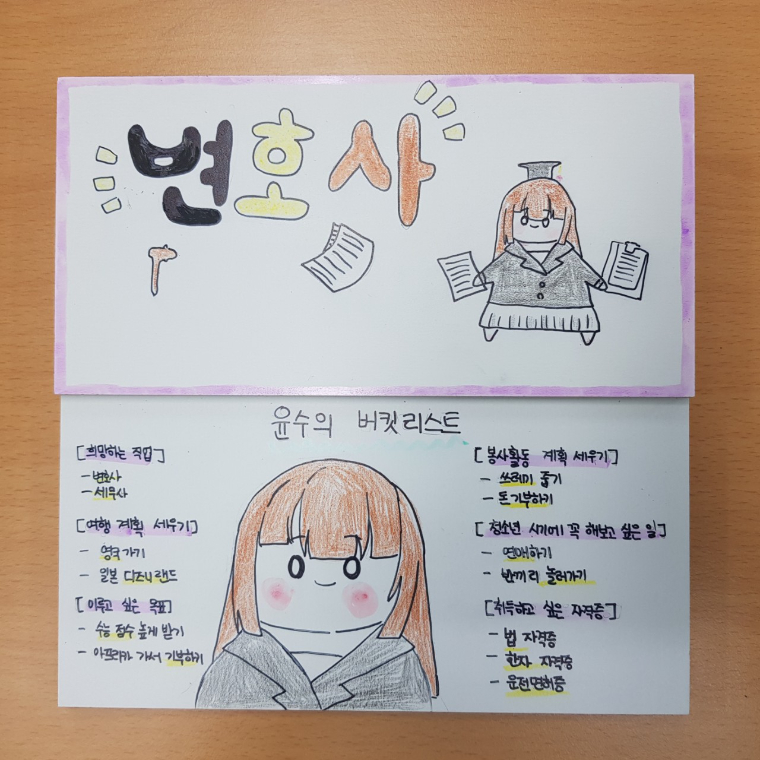 변호사
윤수의 버킷리스트
[희망하는 직업]
- 변호사
- 세무사
[여행 계획 세우기]
- 영국 가기
- 일본 디즈니랜드
[이루고 싶은 목표]
- 수능 점수 높게 받기
- 아프리카 가서 기부하기
[봉사활동 계획 세우기]
- 쓰레기 줍기
- 돈 기부하기
[청소년 시기에 꼭 해보고 싶은 일]
- 연애하기
- 반끼리 놀러가기
[취득하고 싶은 자격증]
- 법 자격증
- 한자 자격증
- 운전면허증